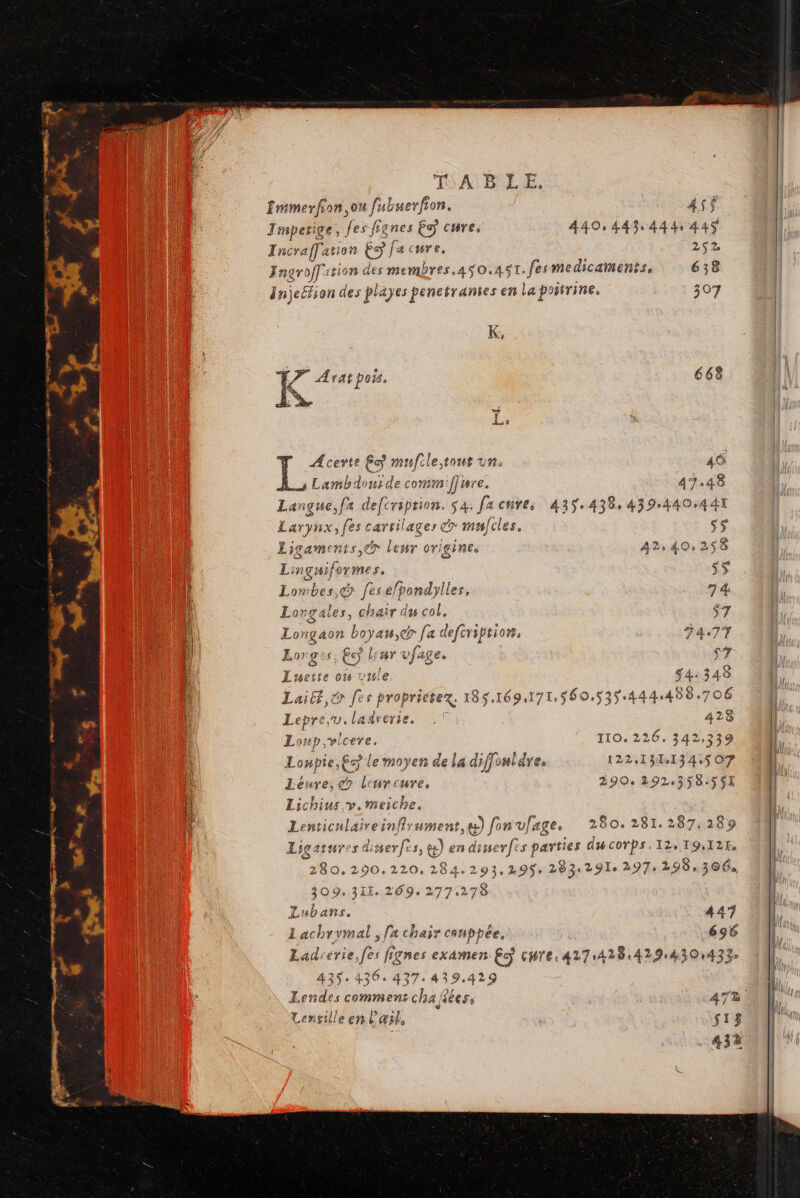 TABLE.
Immerſion,ou ſubuerſion. 455
Impetige, ſes ſignes & cure. 440. 443. 444. 445
Incraſſation & ſa cure. 252
Ingroſſation des membres.450.451. ſes medicaments. 638
Injection des playes penetrantes en la poitrine. 307
K.
KArat pois. 668
L.
LAcerte & muſcle,tout vn. 46
Lambdouide commiſſure. 47.48
Langue,ſa deſcription. 54. ſa cure. 435. 438. 439.440.441
Larynx, ſes cartilages & muſcles. 55
Ligaments,& leur origine. 42. 40. 258
Linguiformes. 55
Lombes,& ſes eſpondylles. 74
Longales, chair du col. 57
Longaon boyau,& ſa deſcription. 74.77
Lorges, & leur vſage. 57
Luette ou vule 54. 348
Laict,& ſes proprietez. 185.169.171.560.535.444.488.706
Lepre,v. ladrerie. 428
Loup,vlcere. 110. 226. 342.339
Loupie,& le moyen de la diſſouldre. 122.131.134.507
Léure, & leur cure. 290. 292.358.551
Lichius v. meiche.
Lenticulaire inſtrument,& ſon vſage. 280. 281. 287. 289
Ligatures diuerſes, & en diuerſes parties du corps. 12. 19.121.
280. 290. 220. 284. 293. 295. 283. 291. 297. 298. 306.
309. 311. 269. 277.278
Lubans. 447
Lachrymal, ſa chair couppée. 696
Ladrerie,ſes ſignes examen & cure. 427.428.429.430.433.
435. 436. 437. 439.429
Lendes comment chaſſées. 472
Lentille en l'œil. 518
432